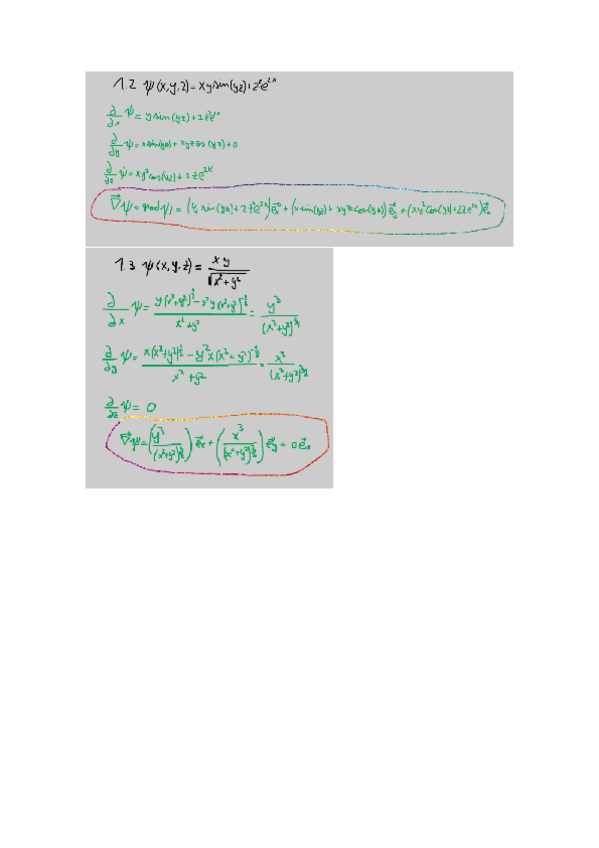 1.2 ψ(x,y,z) = xy sin(yz) + z²e^{2x}
∂/∂x ψ = y sin(yz) + 2z²e^{2x}
∂/∂y ψ = x sin(yz) + xyz cos(yz) + 0
∂/∂z ψ = xy² cos(yz) + 2ze^{2x}
∇ψ = grad ψ = (y sin(yz) + 2z²e^{2x}) e⃗ₓ + (x sin(yz) + xyz cos(yz)) e⃗_y + (xy² cos(yz) + 2ze^{2x}) e⃗
1.3 ψ(x,y,z) = xy/√(x²+y²)
∂/∂x ψ = (y(x²+y²)^{1/2} − x²y(x²+y²)^{-1/2})/(x²+y²) = y³/(x²+y²)^{3/2}
∂/∂y ψ = (x(x²+y²)^{1/2} − y²x(x²+y²)^{-1/2})/(x²+y²) = x³/(x²+y²)^{3/2}
∂/∂z ψ = 0
∇ψ = (y³/(x²+y²)^{3/2}) e⃗ₓ + (x³/(x²+y²)^{3/2}) e⃗_y + 0 e⃗